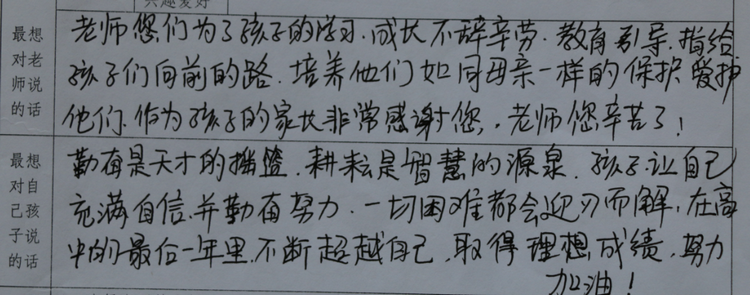 兴趣爱好
最想对老师说的话
老师您们为了孩子的学习.成长不辞辛劳.教育引导.指给
孩子们向前的路.培养他们如同母亲一样的保护爱护
他们.作为孩子的家长非常感谢您,.老师您辛苦了!
最想对自己孩子说的话
勤奋是天才的摇篮.耕耘是智慧的源泉.孩子让自己
充满自信.并勤奋努力.一切困难都会迎刃而解,在高
中的最后一年里.不断超越自己.取得理想成绩.努力
加油!